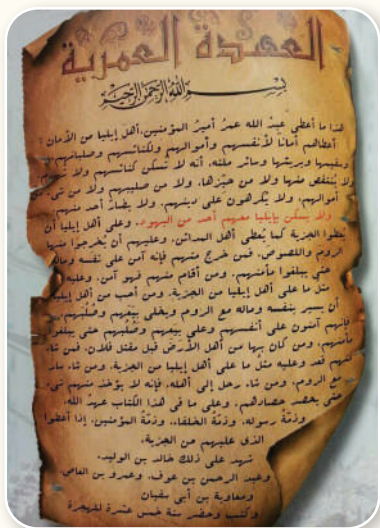 العهدة العمرية
بسم الله الرحمن الرحيم
هذا ما أعطى عبد الله عمر أمير المؤمنين، أهل إيليا من الأمان:
أعطاهم أمانا لأنفسهم وأموالهم ولكنائسهم وصلبانهم
وسقيمها وبريئها وسائر ملتها، أنه لا تسكن كنائسهم ولا تهدم
ولا ينتقص منها ولا من حيزها، ولا من صليبهم ولا من شيء من
أموالهم، ولا يكرهون على دينهم، ولا يضار أحد منهم
ولا يسكن بإيليا معهم أحد من اليهود، وعلى أهل إيليا أن
يعطوا الجزية كما يعطى أهل المدائن، وعليهم أن يخرجوا منها
الروم واللصوص، فمن خرج منهم فإنه آمن على نفسه وماله
حتى يبلغوا مأمنهم، ومن أقام منهم فهو آمن، وعليه
مثل ما على أهل إيليا من الجزية، ومن أحب من أهل إيليا
أن يسير بنفسه وماله مع الروم ويخلى بيعهم وصلبهم،
فإنهم آمنون على أنفسهم وعلى بيعهم وصلبهم حتى يبلغوا
مأمنهم، ومن كان بها من أهل الأرض قبل مقتل فلان، فمن شاء
منهم قعد وعليه مثل ما على أهل إيليا من الجزية، ومن شاء سار
مع الروم، ومن شاء رجل إلى أهله، فإنه لا يؤخذ منهم شيء
حتى يحصد حصادهم، وعلى ما فى هذا الكتاب عهد الله،
وذمة رسوله، وذمة الخلفاء، وذمة المؤمنين، إذا أعطوا
الذى عليهم من الجزية.
شهد على ذلك خالد بن الوليد،
وعبد الرحمن بن عوف، وعمرو بن العاص
ومعاوية بن أبى سفيان
وكتب وحضر سنة خمس عشرة للهجرة